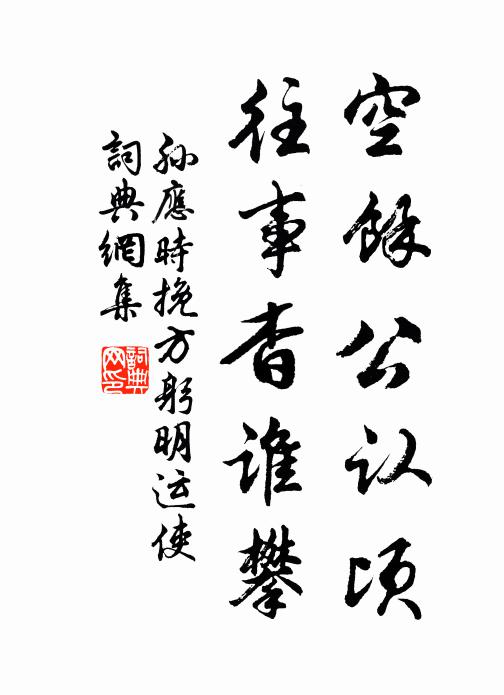 空餘公认頃
往事杳誰攀
孫應時挽方躬明运使
詞典網集
詞典网印